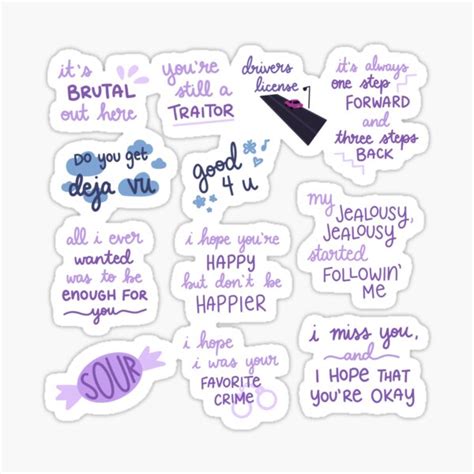 it's
BRUTAL
out here
you're
still a
TRAITOR
drivers
license
it's always
one step
FORWARD
and
three steps
BACK
DO YOU GET
deja vu
good
4 u
my
JEALOUSY,
JEALOUSY
started
FOLLOWIN'
ME
all i ever
wanted
was to be
ENOUGH FOR
you
i hope you're
HAPPY
but don't be
HAPPIER
SOUR
i hope
i was your
FAVORITE
CRIME
i miss you,
and
I HOPE THAT
YOU'RE OKAY